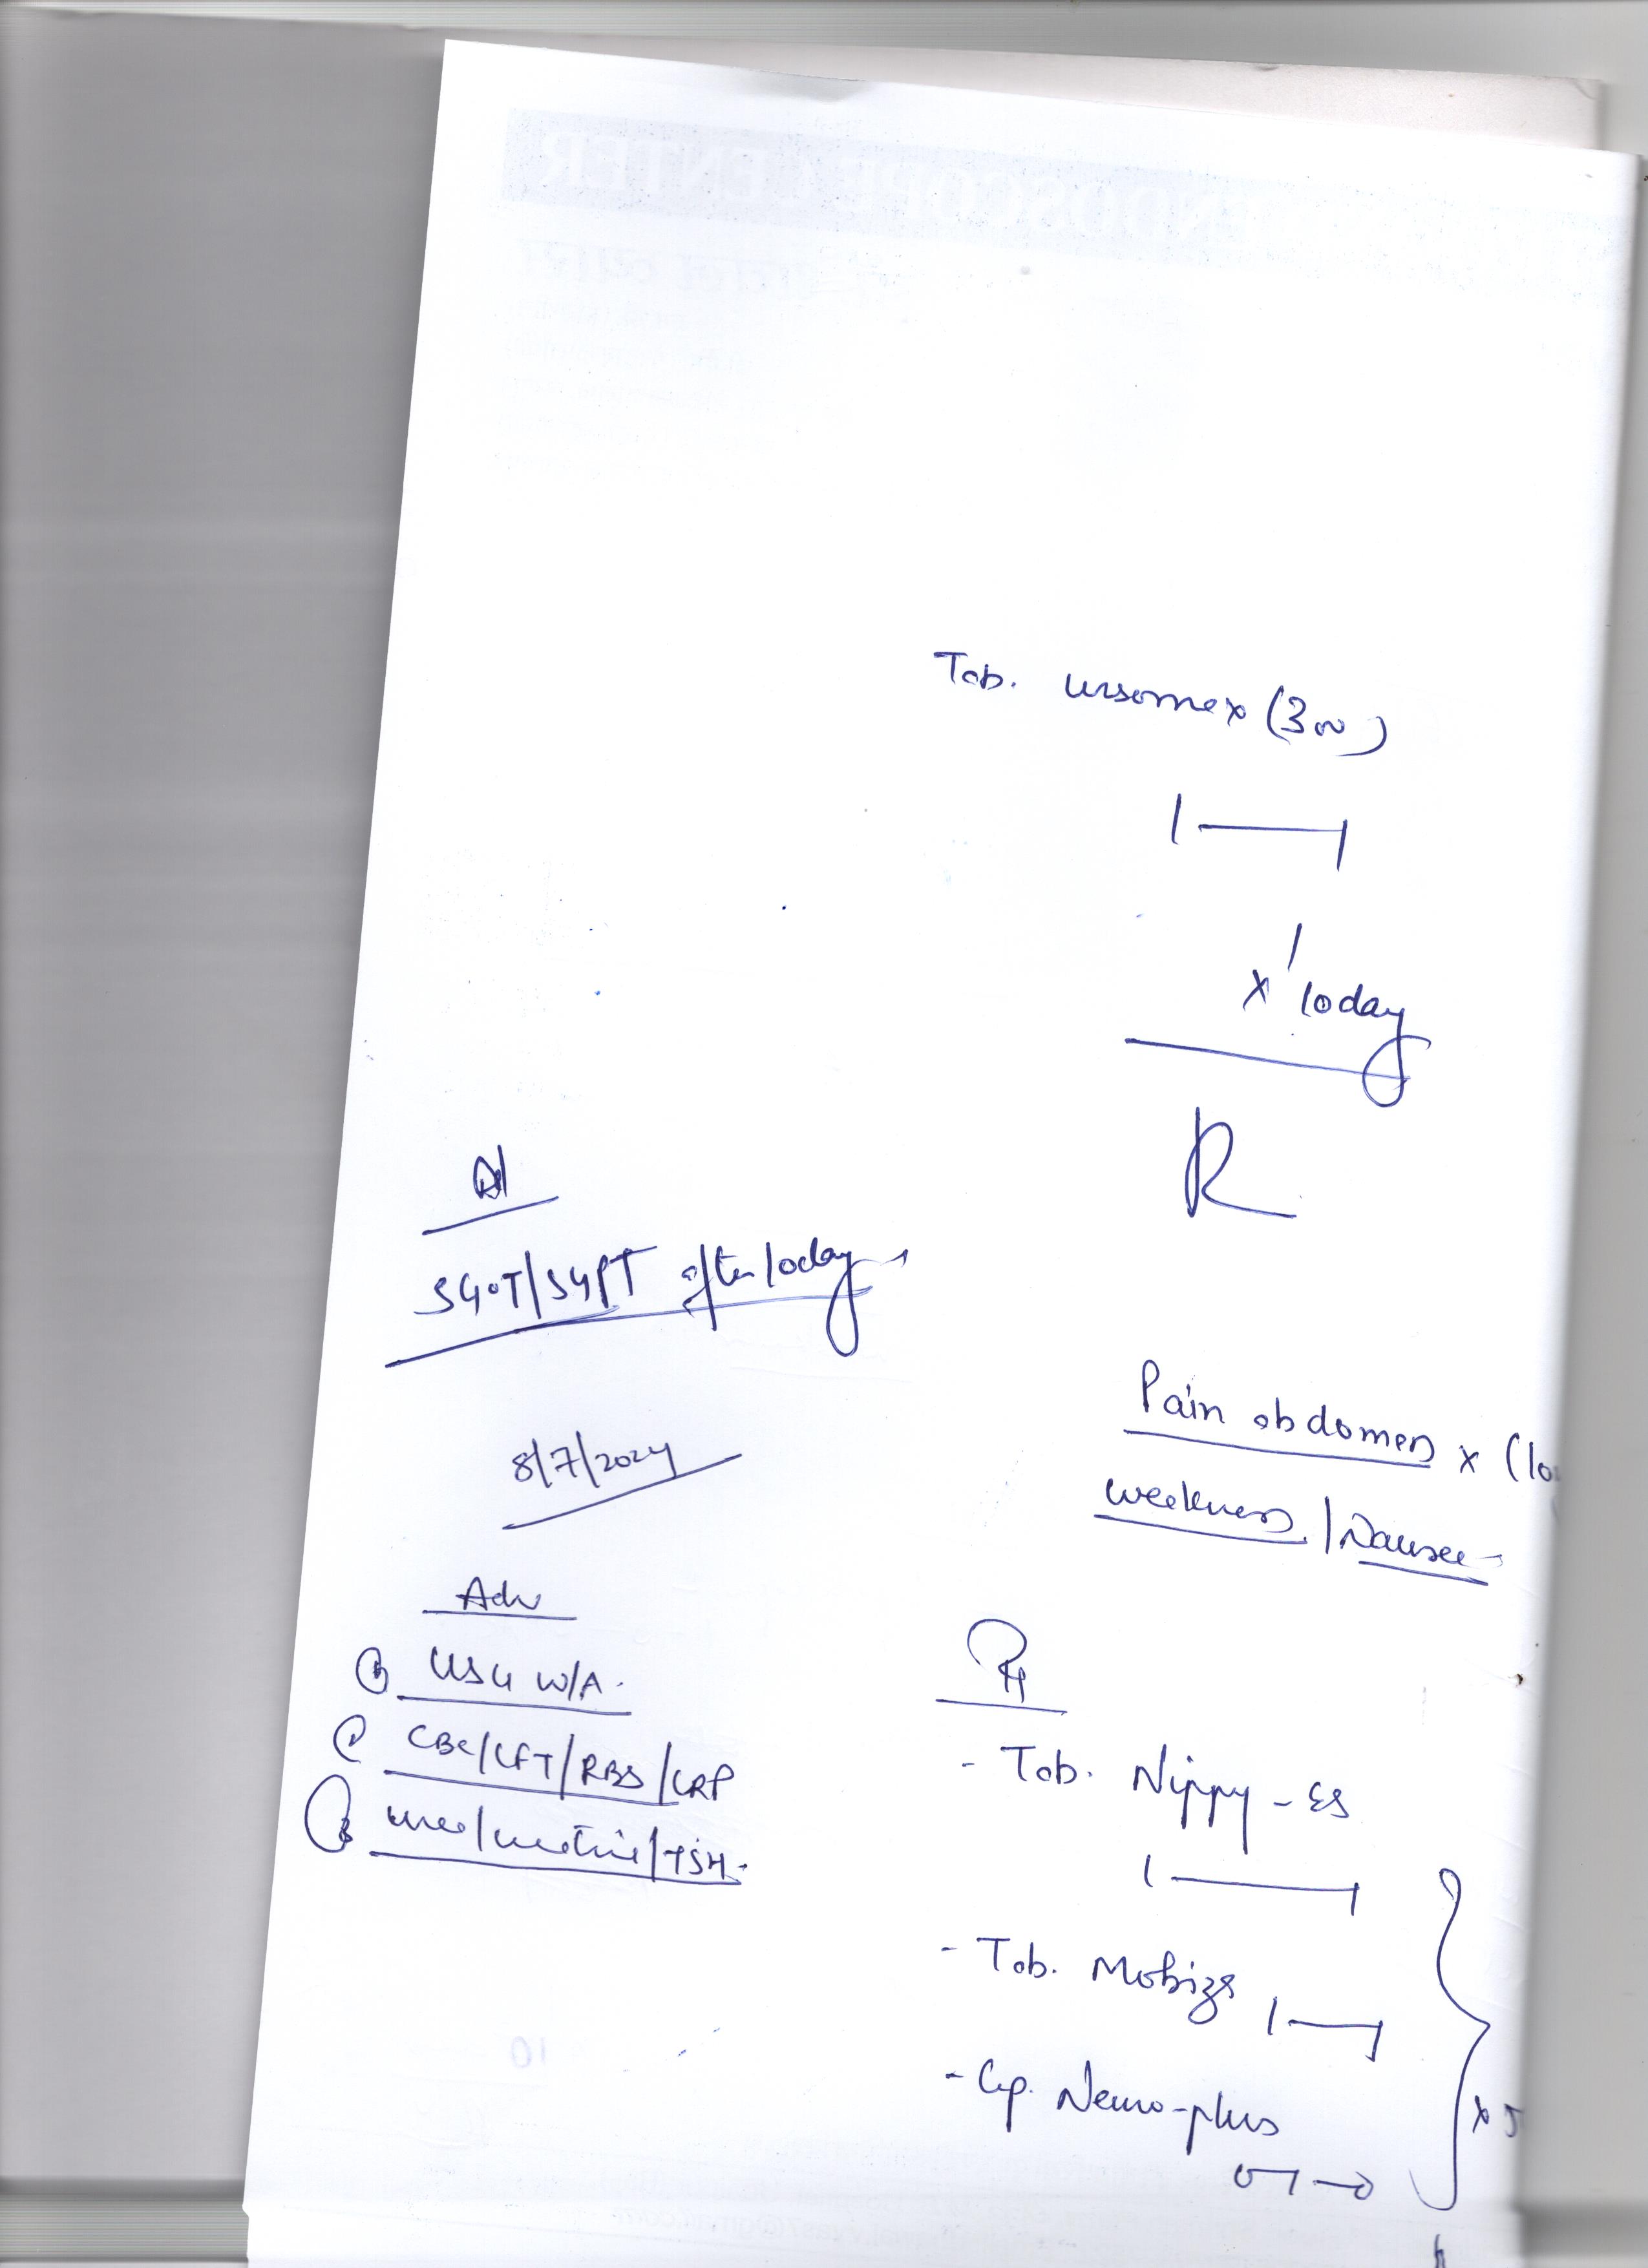 Tab. Ursomex (300)
1 — 1
x 10 day
R
Adv
SGOT/SGPT after 10 day
Pain abdomen x (10
8/7/2024
weakness / Nausea
Adv
① USG W/A.
② CBC/LFT/RBS/CRP
③ urea/creatinine/TSH.
- Tab. Nippy-ES
1 — 1
- Tab.
1 — 1
- Cap. Neuro-plus
x 5
0 – 1 – 0